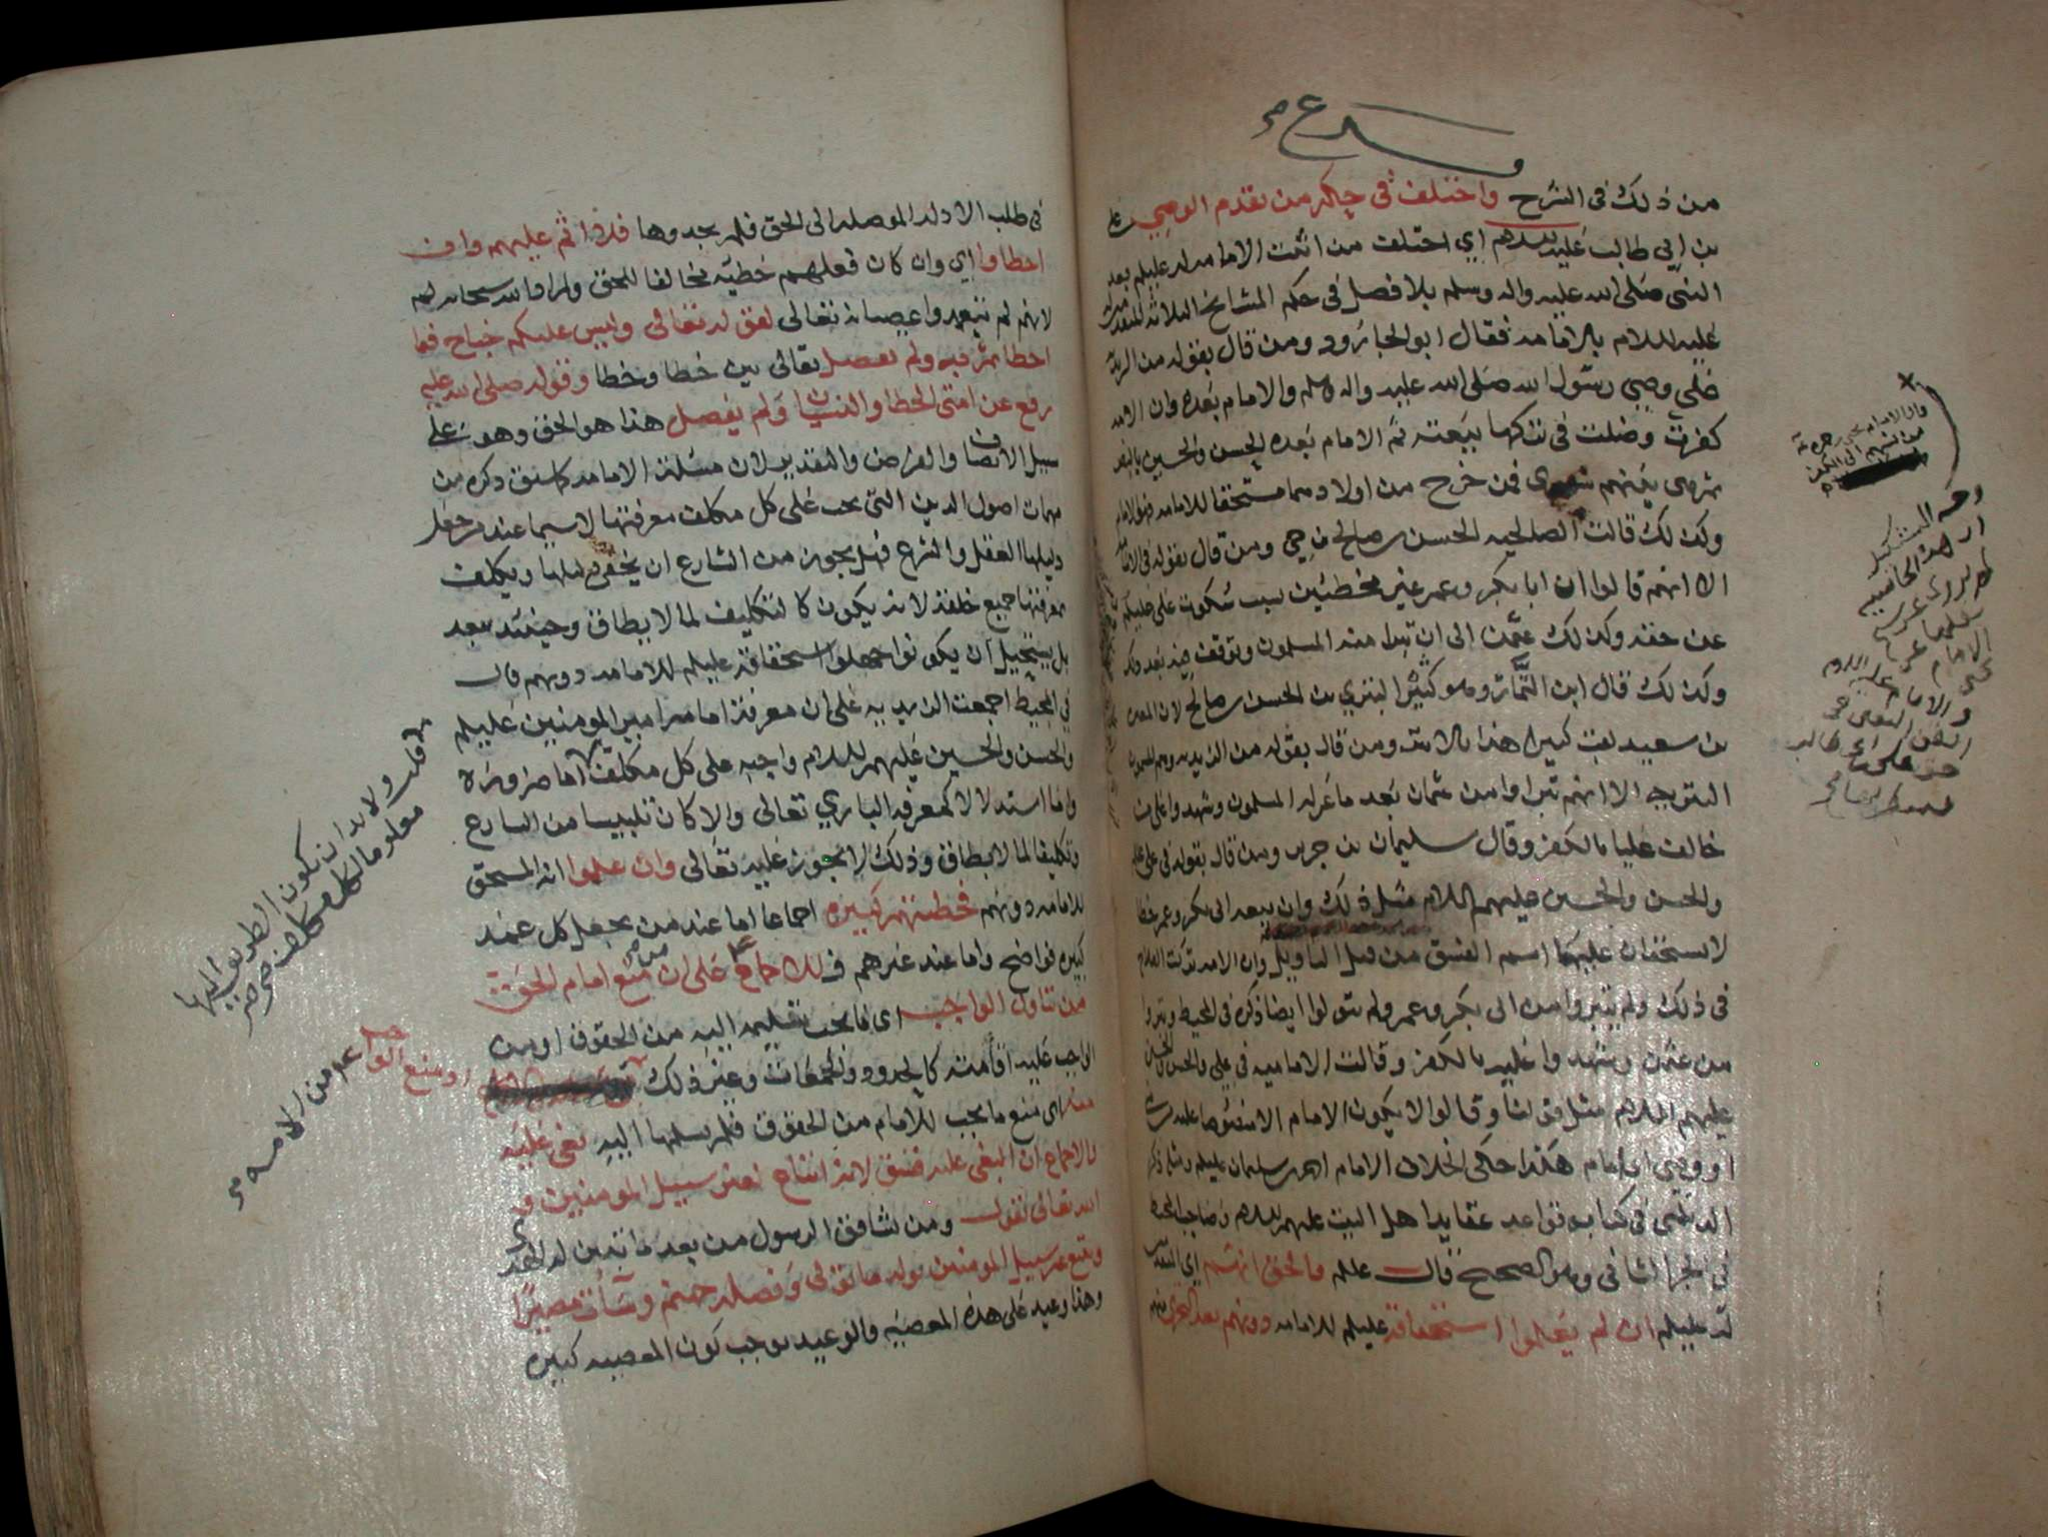 فرع
من ذلك في الشرح واختلف في حكم من تقدم الوصي علي
بن ابي طالب عليه السلام اي اختلف من اثبت الامامه له عليلم بعد
النبي صلى الله عليه واله وسلم بلا فصل في حكم المشايخ الثلاثه المتقدمين
عليه السلام بالامامه فقال ابو الجارود ومن قال بقوله من الزيديه
علي وصي رسول الله صلى الله عليه واله وسلم والامام بعده وان الامه
كفرت وضلت في تركها بيعته ثم الامام بعده الحسن والحسين بالنص
ثم هي بينهم شورى فمن خرج من اولادهما مستحقا للامامه فهو الامام
وكذلك قالت الصالحيه الحسن بن صالح بن حي ومن قال بقوله في الامامه
الا انهم قالوا ان ابا بكر وعمر غير مخطئين بسبب سكوت علي عليلم
عن حقه وكذلك عثمن الى ان تبرا منه المسلمون وتوقف فيه بعد ذلك
وكذلك قال ابن التمار وهو كثير البتري بن الحسن بن صالح لان المغيره
بن سعيد لقب كثيرا هذا بالابتر ومن قال بقوله من الزيديه وهم المسمون
البتريه الا انهم تبراوا من عثمان بعد ما عزله المسلمون وشهدوا على من
خالف عليا بالكفر وقال سليمان بن جرير ومن قال بقوله في علي
والحسن والحسين عليهم السلام مثل ذلك وان بيعه ابي بكر وعمر خطا
لا يستحقان عليها اسم الفسق من قبل التاويل وان الامه تركت الصلاح
في ذلك ولم يتبروا من ابي بكر وعمر ولم يتولوا ايضا ذكره في المحيط وتبروا
من عثمن وشهدوا عليه بالكفر وقالت الاماميه في علي والحسن والحسين
عليهم السلام مثل قولنا وقالوا لا يكون الامام الا منصوصا عليه
او وصي امام هكذا حكى الخلاف الامام احمد بن سليمان عليلم ومثله ذكر
الديلمي في كتاب قواعد عقايد اهل البيت عليهم السلام وصاحب المحيط
في الجزء الثاني وهو الصحيح قال عليلم والحق انهم اي المتقدمين
له عليلم ان لم يعلموا استحقاقه عليلم للامامه دونهم بعد التحري منهم
قال الامام يحيى بن حمزه
من نسبهم الى الكفر
وجه التشكيل
الامام
يحيى
والامام عليه السلام
علي بن ابي طالب
في طلب الادله الموصله الى الحق فلم يجدوها فلا اثم عليهم وان
اخطاوا اي وان كان فعلهم خطيه مخالفا للحق ولمراد الله سبحانه لهم
لانهم لم يتعمدوا عصيانه تعالى لقوله تعالى وليس عليكم جناح فيما
اخطاتم به ولم يفصل تعالى بين خطا وخطا وقوله صلى الله عليه
رفع عن امتي الخطا والنسيان ولم يفصل هذا هو الحق وهو على
سبيل الانصاف والفرض والتقدير لان مسئله الامامه كما سبق ذكره من
مهمات اصول الدين التي يجب على كل مكلف معرفتها لا سيما عند من جعل
دليلها العقل والشرع فهل يجوز من الشارع ان يخفي دليلها ويكلف
بمعرفتها جميع خلقه لانه يكون كالتكليف لما لا يطاق وحينئذ يبعد
بل يستحيل ان يكونوا جهلوا استحقاقه عليلم للامامه دونهم قال
في المحيط اجمعت الزيديه على ان معرفه امامه امير المومنين عليلم
والحسن والحسين عليهم السلام واجبه على كل مكلف اما ضروره
واما استدلالا كمعرفه الباري تعالى والا كان تلبيسا من الشارع
وتكليفا لما لا يطاق وذلك لا يجوز عليه تعالى وان علموا انه المستحق
للامامه دونهم فخطيئتهم كبيره اجماعا اما عند من يجعل كل عمد
كبيره فواضح واما عند غيرهم فللاجماع على ان منع امام الحق
من تناول الواجب اي ما يجب تسليمه اليه من الحقوق او من
الواجب عليه اقامته كالحدود والجمعات وغير ذلك
اي منع ما يجب للامام من الحقوق فلم يسلمها اليه بغي عليه
والاجماع ان البغي عليه فسق لانه اتباع لغير سبيل المومنين و
الله تعالى يقول ومن يشاقق الرسول من بعد ما تبين له الهدى
ويتبع غير سبيل المومنين نوله ما تولى ونصله جهنم وسآت مصيرا
وهذا وعيد على هذه المعصيه والوعيد يوجب كون المعصيه كبيره
قلت ولا بد ان تكون الطريق اليها
معلومه لكل مكلف
او منع الواجب